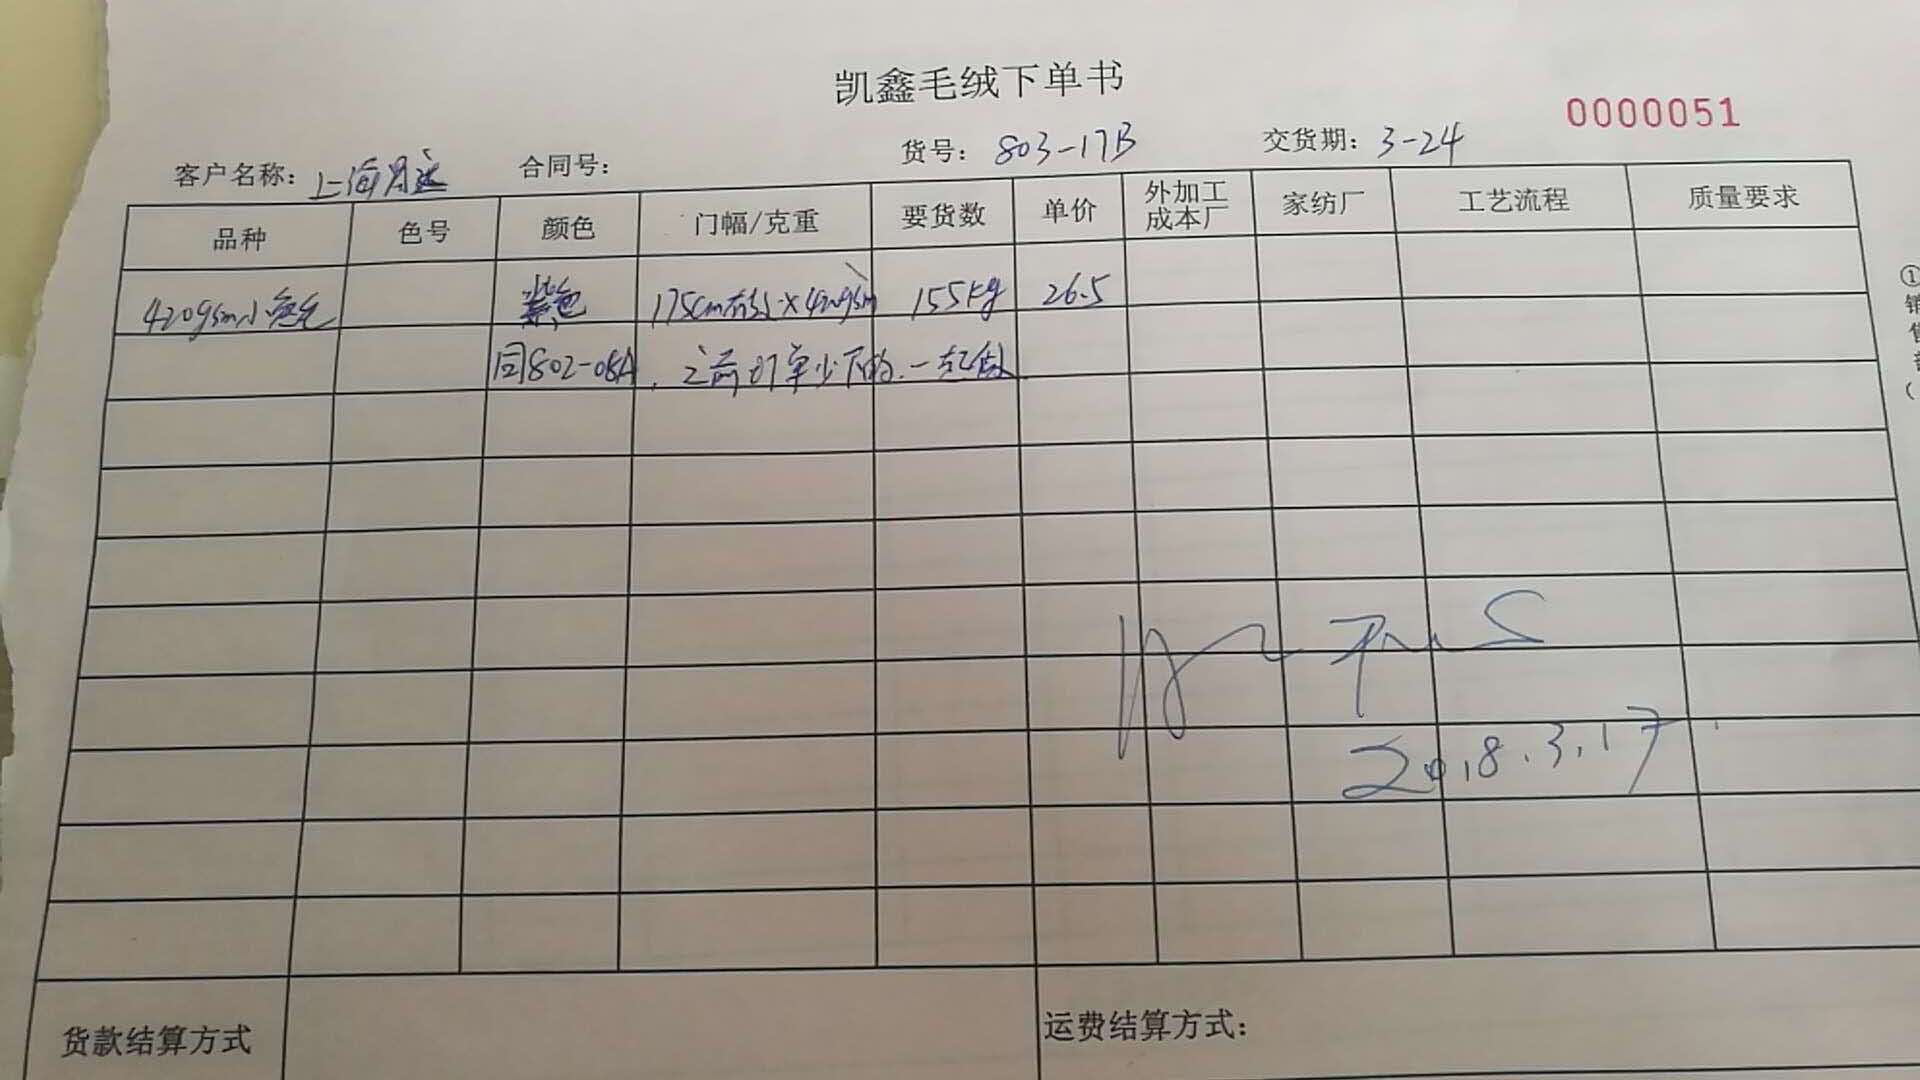 凯鑫毛绒下单书
0000051
客户名称: 上海 合同号: 货号: 803-17B 交货期: 3-24
品种 色号 颜色 门幅/克重 要货数 单价 外加工成本厂 家纺厂 工艺流程 质量要求
420gsm 紫色 175cm有效×420gsm 155kg 26.5
同802-08A, 之前订单少下的.一起做
2018.3.17
货款结算方式 运费结算方式:
①
销
售